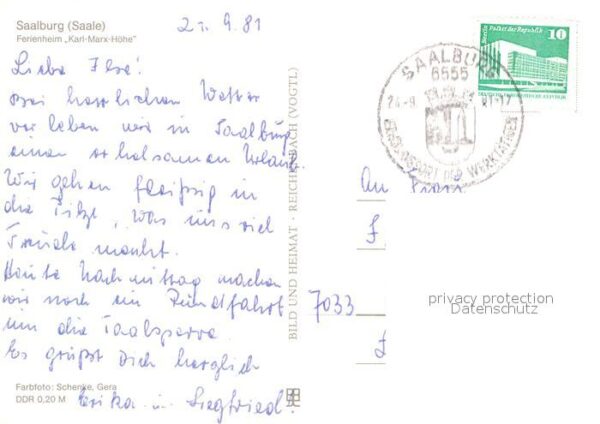 Saalburg (Saale)
Ferienheim „Karl-Marx-Höhe"
9. 81
Liebe Ilse!
Bei herrlichem Wetter
verleben wir in Saalburg
einen erholsamen Urlaub.
Wir gehen fleißig in
die Pilze, was uns viel
Freude macht.
Heute Nachmittag machen
wir noch ein Rundfahrt
um die Talsperre.
Es grüßt Dich herzlich
Erika u. Siegfried.
Farbfoto: Schenke, Gera
DDR 0,20 M
BILD UND HEIMAT · REICHENBACH (VOGTL)
Berlin Palast der Republik
10
SAALBURG
6555
ERHOLUNGSORT DER WERKTÄTIGEN
An Frau
7033
privacy protection
Datenschutz